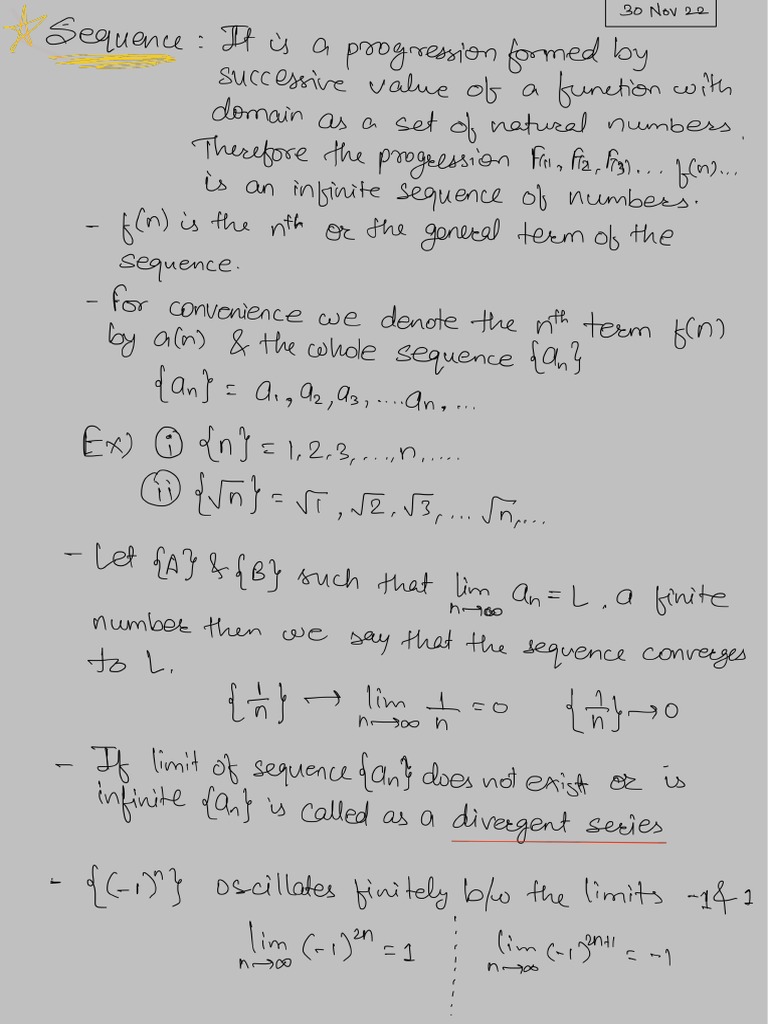 30 Nov 22
Sequence : It is a progression formed by
successive value of a function with
domain as a set of natural numbers.
Therefore the progression f(1), f(2, f(3) ... f(n)...
is an infinite sequence of numbers.
- f(n) is the nth or the general term of the
sequence.
- For convenience we denote the nth term f(n)
by a(n) & the whole sequence {an}
{an} = a1, a2, a3, ....an, ...
Ex) (i) {n} = 1, 2, 3, ..., n, ....
(ii) {√n} = √1, √2, √3, ... √n, ...
- Let {A} & {B} such that lim n→∞ an = L, a finite
number then we say that the sequence converges
to L.
{1/n} → lim n→∞ 1/n = 0 {1/n} → 0
- If limit of sequence {an} does not exist or is
infinite {an} is called as a divergent series
- {(-1)^n} oscillates finitely b/w the limits -1 & 1
lim n→∞ (-1)^2n = 1 lim n→∞ (-1)^2n+1 = -1